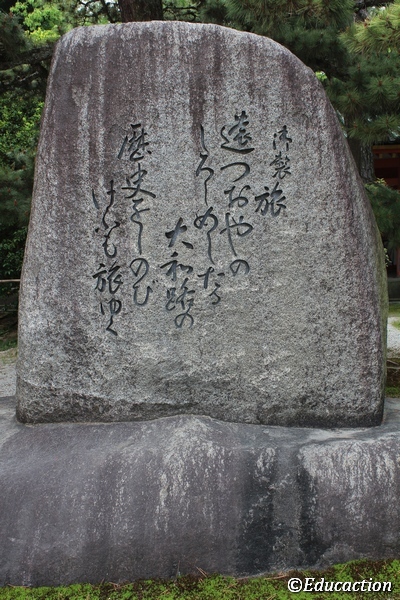 御製 旅
遠つおやの
しろしめしたる
大和路の
歴史をしのび
けふも旅ゆく
©Educaction